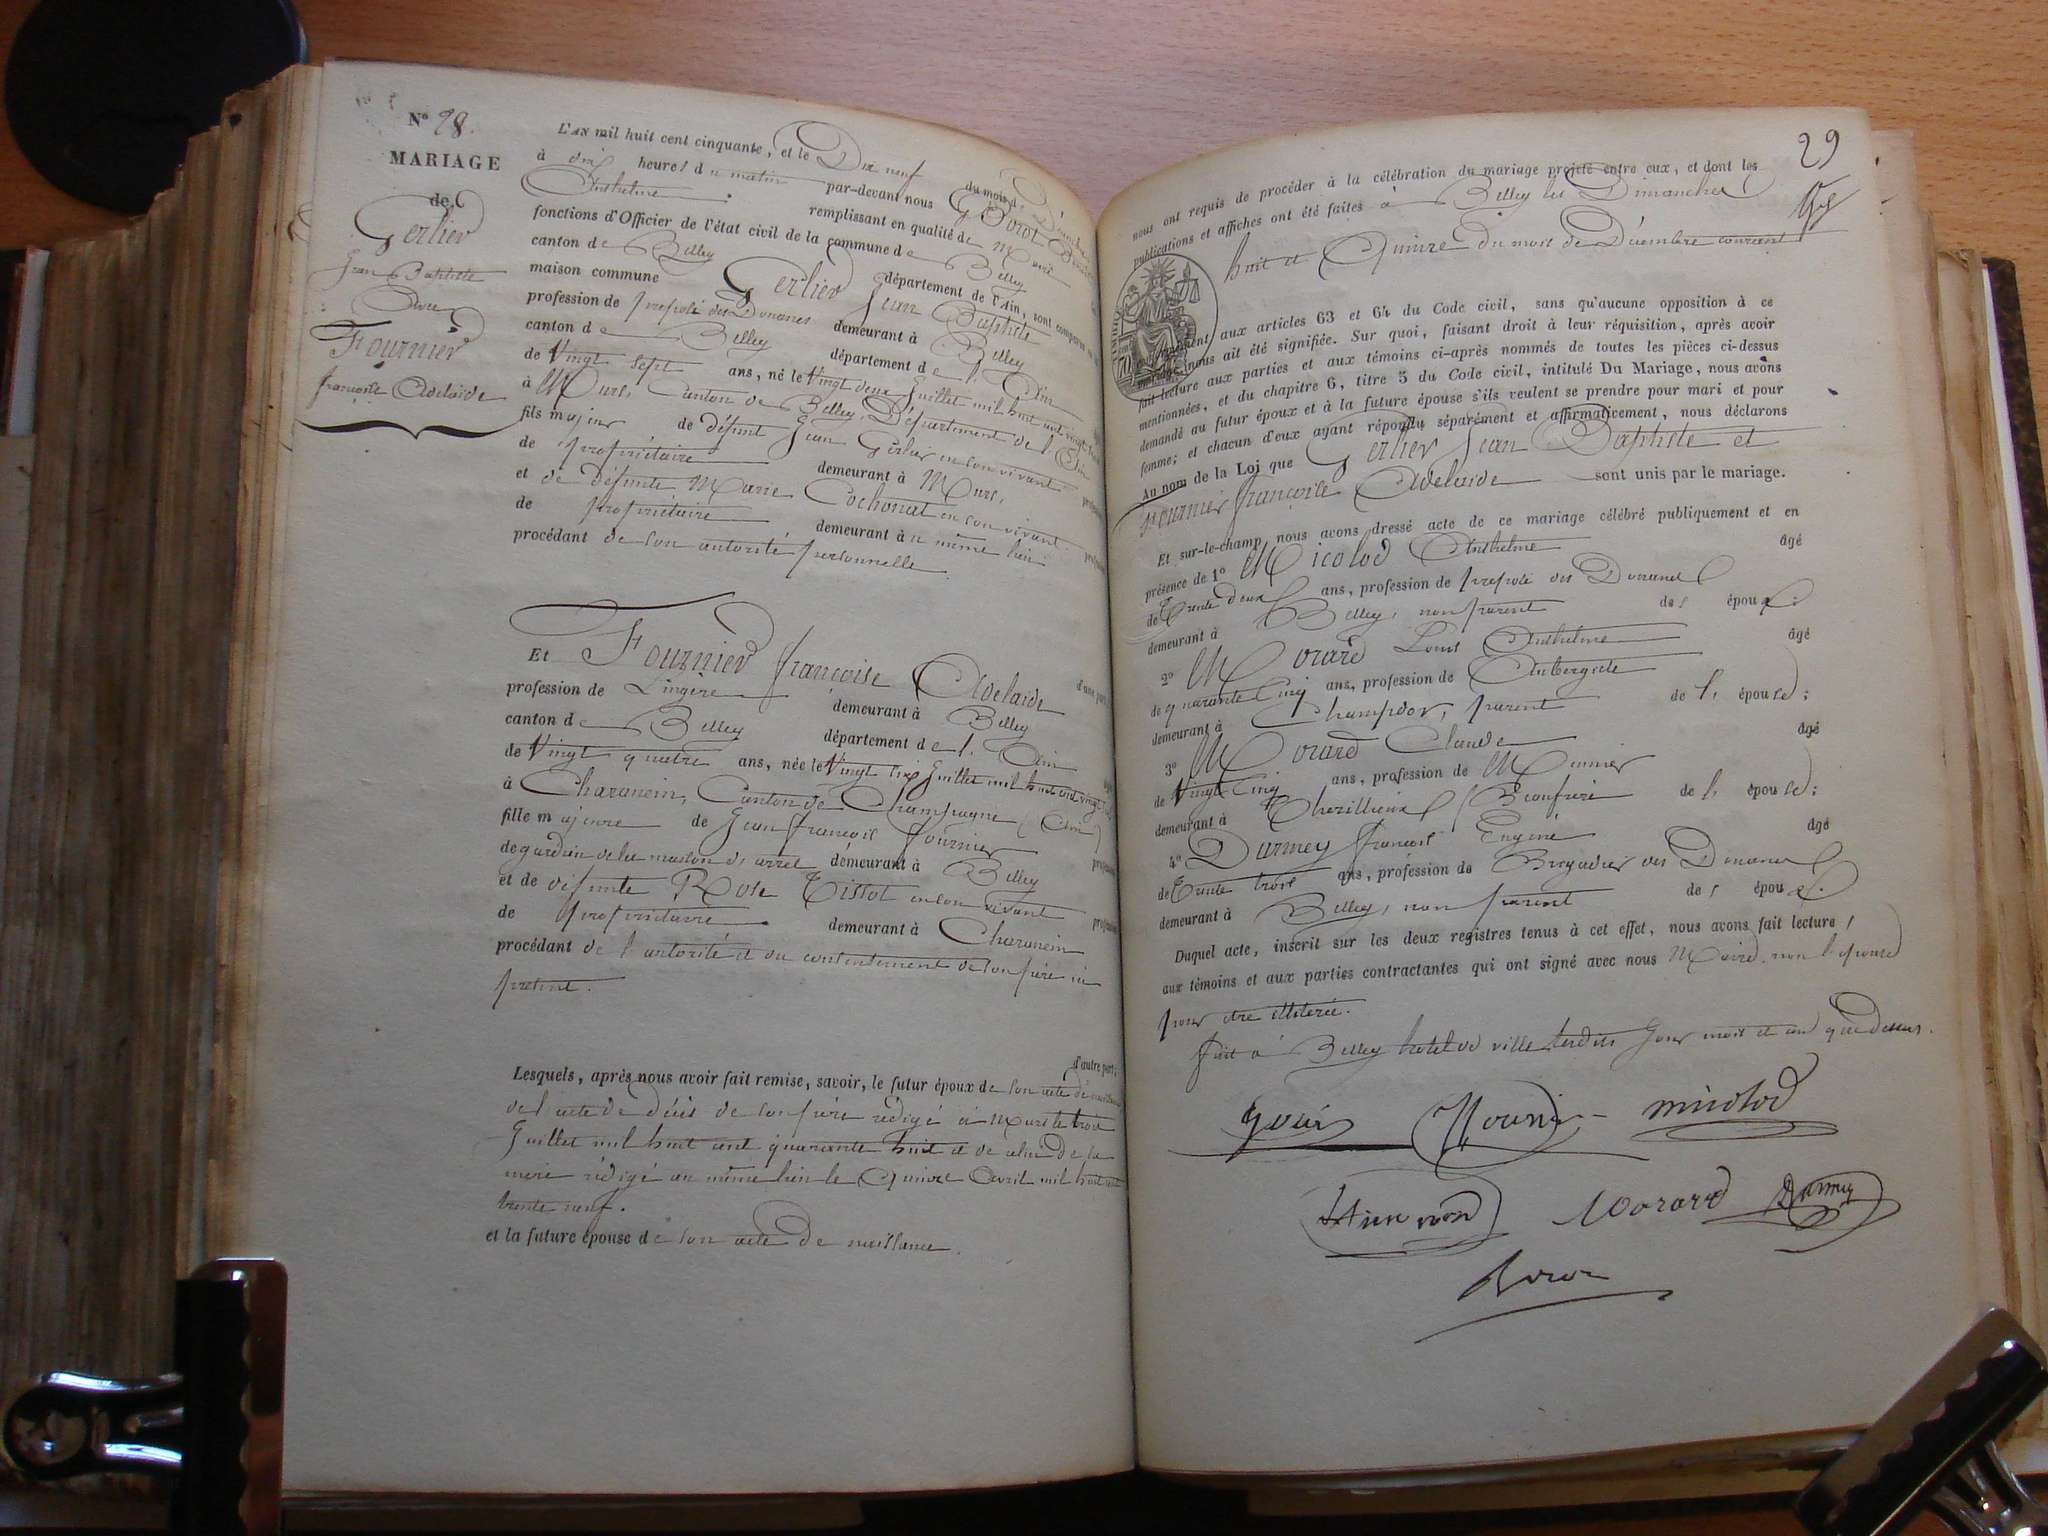 N° 28.
MARIAGE
de
Gerlier
Jean Baptiste
avec
Fournier
françoise Adelaide
L'AN mil huit cent cinquante, et le Dix neuf du mois de Décembre
à dix heures du matin par-devant nous
Anthelme remplissant en qualité de Maire
fonctions d'Officier de l'état civil de la commune de Belley
canton de Belley département de l'Ain, sont comparus en la
maison commune Gerlier Jean Baptiste
profession de préposé des Douanes demeurant à Belley
canton de Belley département de l'Ain
de Vingt sept ans, né le Vingt deux Juillet mil huit cent vingt trois
à Murs, Canton de Belley, Département de l'Ain
fils majeur de défunt Jean Gerlier en son vivant
de propriétaire demeurant à Murs,
et de défunte Marie Cochonat en son vivant
de propriétaire demeurant au même lieu
procédant de son autorité personnelle
d'une part,
Et Fournier françoise Adelaide
profession de Lingère demeurant à Belley
canton de Belley département de l'Ain
de Vingt quatre ans, née le Vingt six Juillet mil huit cent vingt
à Charancin, Canton de Champagne (Ain)
fille majeure de Jean françois fournier
de gardien de la maison d'arrêt demeurant à Belley
et de défunte Rose Tissot en son vivant
de propriétaire demeurant à Charancin
procédant de l'autorité et du consentement de son père ici
présent.
d'autre part;
Lesquels, après nous avoir fait remise, savoir, le futur époux de son acte de naissance
de l'acte de décès de son père rédigé à Murs le trois
Juillet mil huit cent quarante huit et de celui de sa
mère rédigé au même lieu le Quinze Avril mil huit cent
trente neuf.
et la future épouse de son acte de naissance.
29
nous ont requis de procéder à la célébration du mariage projeté entre eux, et dont les
publications et affiches ont été faites à Belley les Dimanches
huit et Quinze du mois de Décembre courant
conformément aux articles 63 et 64 du Code civil, sans qu'aucune opposition à ce
mariage nous ait été signifiée. Sur quoi, faisant droit à leur réquisition, après avoir
fait lecture aux parties et aux témoins ci-après nommés de toutes les pièces ci-dessus
mentionnées, et du chapitre 6, titre 5 du Code civil, intitulé Du Mariage, nous avons
demandé au futur époux et à la future épouse s'ils veulent se prendre pour mari et pour
femme; et chacun d'eux ayant répondu séparément et affirmativement, nous déclarons
Au nom de la Loi que Gerlier Jean Baptiste et
Fournier françoise Adelaide sont unis par le mariage.
Et sur-le-champ nous avons dressé acte de ce mariage célébré publiquement et en
présence de 1° Micolod Anthelme âgé
de Trente deux ans, profession de préposé des Douanes
demeurant à Belley, non parent des époux;
2° Morard Louis Anthelme âgé
de quarante Cinq ans, profession de Aubergiste
demeurant à Champdor, parent de l'épouse;
3° Morard Claude âgé
de Vingt Cinq ans, profession de Meunier
demeurant à Thezillieux Beaufrère de l'épouse;
4° Durmey françois Eugène âgé
de Trente trois ans, profession de Brigadier des Douanes
demeurant à Belley, non parent des époux.
Duquel acte, inscrit sur les deux registres tenus à cet effet, nous avons fait lecture,
aux témoins et aux parties contractantes qui ont signé avec nous Maire, non l'épouse
pour être illitérée.
fait à Belley hotel de ville lesdits Jour mois et an que dessus.
micolod
Morard Durmey